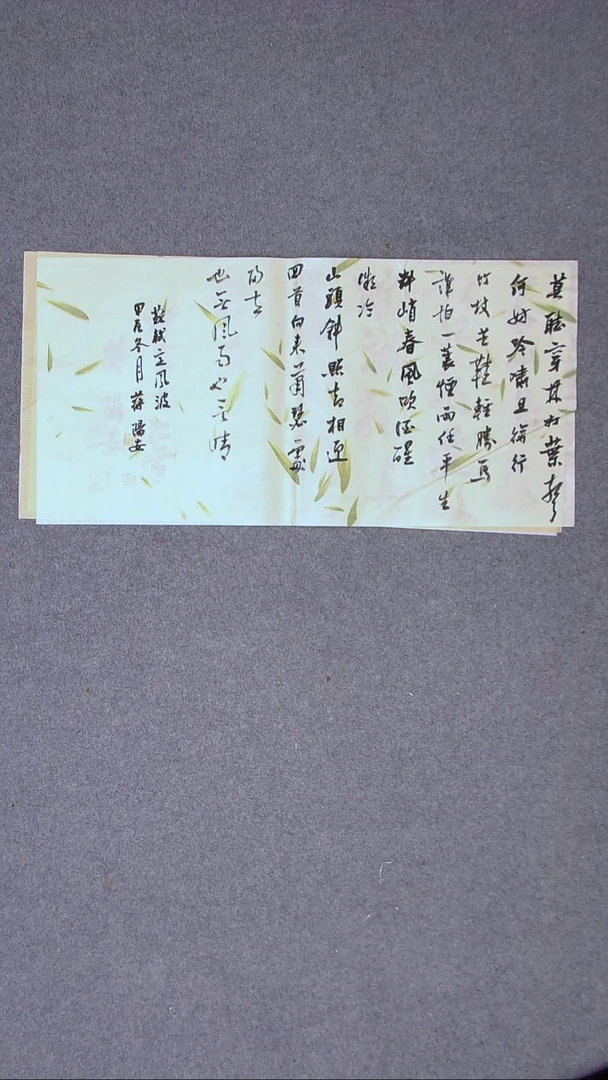 莫聽穿林打葉聲
何妨吟嘯且徐行
竹杖芒鞋輕勝馬
誰怕一蓑煙雨任平生
料峭春風吹酒醒
微冷
山頭斜照去相迎
回首向来蕭瑟處
歸去
也無風雨也無晴
蘇軾定風波
甲辰冬月蔣